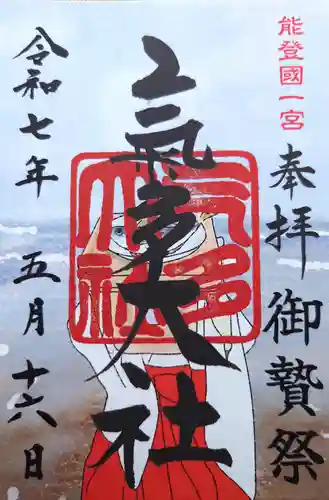 能登國一宮
奉拝 御贄祭
氣多大社
氣多大社
令和七年 五月 十六日